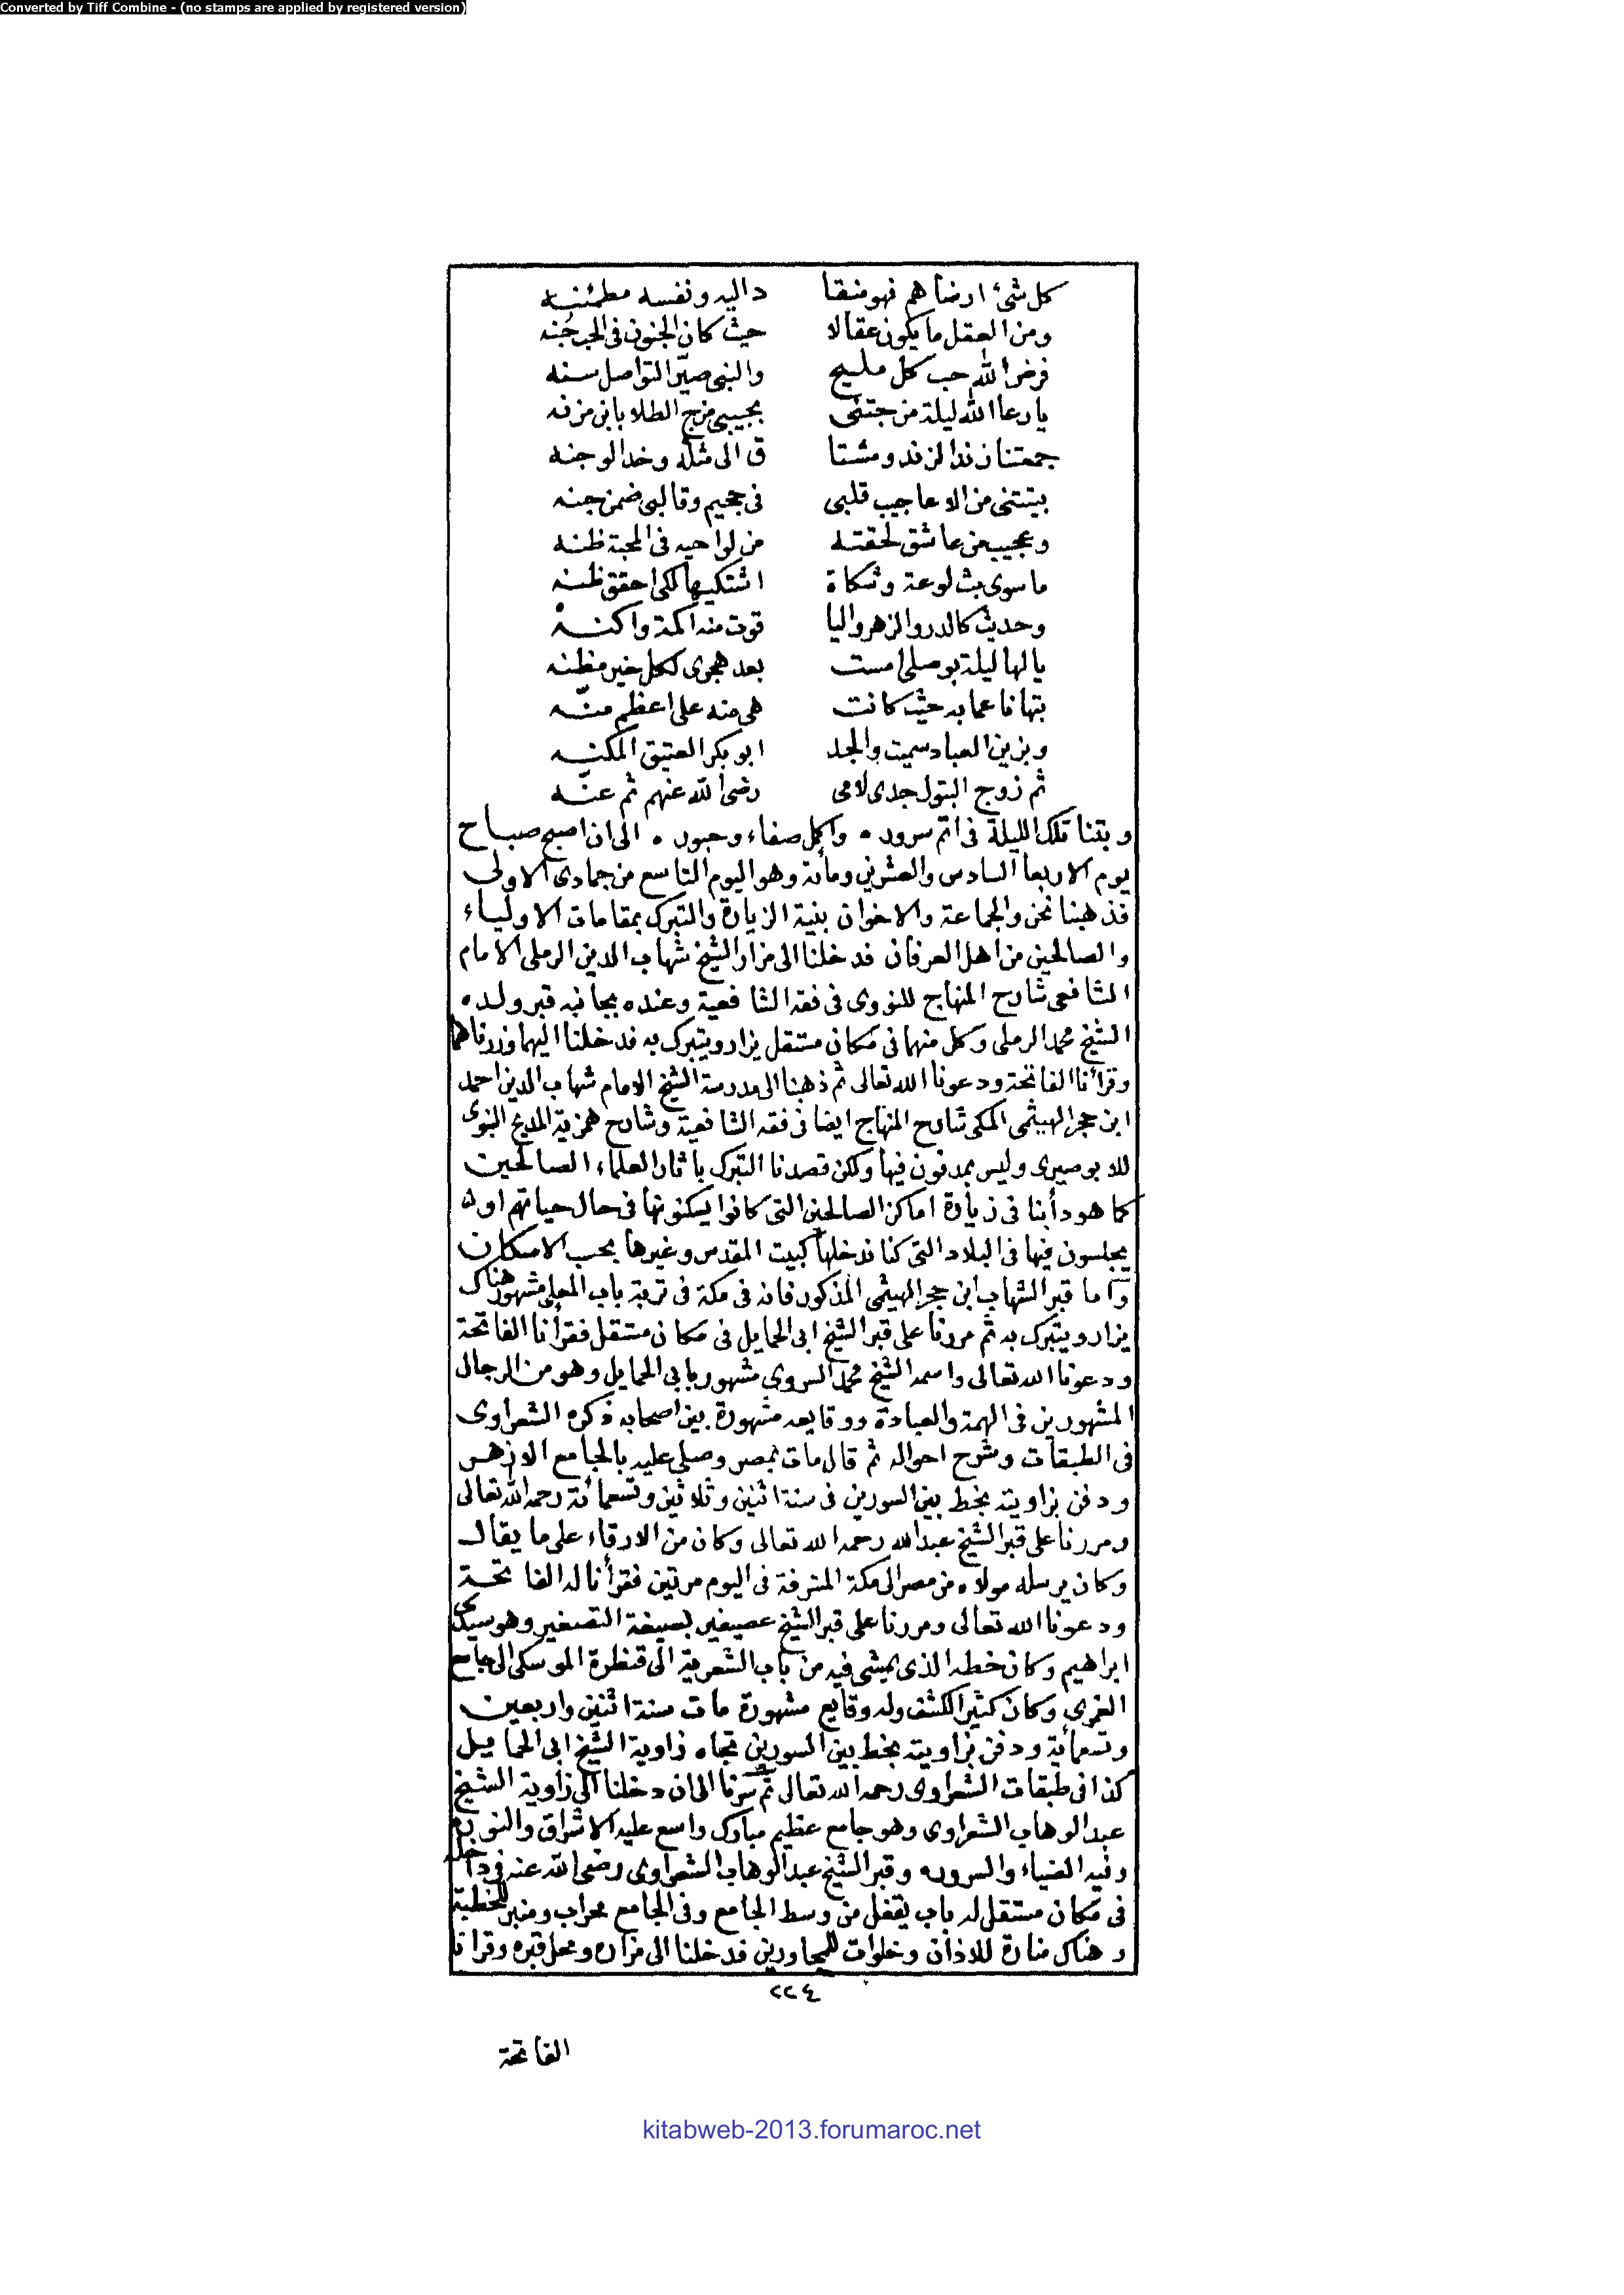 Converted by Tiff Combine - (no stamps are applied by registered version)
كل شئ ارضاهم فهو منقا    د اليه ونفسه مطمئنه
ومن العقل ما يكون عقالا    حيث كان الجنون فى الحب جُنه
فرض الله حب كل مليح    والنبى صيّر التواصل سنه
يا رعا الله ليلة من جتنى    بحبيبى مزج الطلا بابن مزنه
جمعتنا زندا لزند ومشتا    ق الى مثله وخدا لوجنه
بيتتنى من الاعاجيب قلبى    فى جحيم وقالبى ضمن جنه
وعجيب من عاشق لحقته    من لواحيه فى المحبة ظنه
ما سوى بث لوعة وشكاة    اشتكيها لكى احقق ظنه
وحديث كالدر والزهر واليا    قوت منه اكمة واكنه
يالها ليلة بوصلى امست    بعد هجرى لكل خير مظنه
بتها ناعما به حيث كانت    هى منه على اعظم منّه
وبزين العباد سميت والجد    ابو بكر العتيق المكنه
ثم زوج البتول جدى لامى    رضى الله عنهم ثم عنّه
وبتنا تلك الليلة فى اتم سرور • واكمل صفاء وحبور • الى ان اصبح صباح
يوم الاربعا السادس والعشرين ومأتة وهو اليوم التاسع من جمادى الاولى
فذهبنا نحن والجماعة والاخوان بنية الزيارة والتبرك بمقامات الاولياء
والصالحين من اهل العرفان فدخلنا الى مزار الشيخ شهاب الدين الرملى الامام
الشافعى شارح المنهاج للنووى فى فقه الشافعية وعنده بجانبه قبر ولده
الشيخ محمد الرملى وكل منهما فى مكان مستقل يزار ويتبرك به فدخلنا اليهما وزرناهما
وقرأنا الفاتحة ودعونا الله تعالى ثم ذهبنا الى مدرسة الشيخ الامام شهاب الدين احمد
ابن حجر الهيثمى المكى شارح المنهاج ايضا فى فقه الشافعية وشارح همزية المديح النبوى
للابوصيرى وليس بمدفون فيها ولكن قصدنا التبرك باثار العلماء الصالحين
كما هو دأبنا فى زيارة اماكن الصالحين التى كانوا يسكنونها فى حال حياتهم او
يجلسون فيها فى البلاد التى كنا ندخلها كبيت المقدس وغيرها بحسب الامكان
واما قبر الشهاب ابن حجر الهيثمى المذكور فانه فى مكة فى تربة باب المعلى مشهور هناك
يزار ويتبرك به ثم مررنا على قبر الشيخ ابى الحمايل فى مكان مستقل فقرأنا الفاتحة
ودعونا الله تعالى واسمه الشيخ محمد السروى مشهور بابى الحمايل وهو من الرجال
المشهورين فى الهمة والعبادة ووقايعه مشهورة بين اصحابه ذكره الشعراوى
فى الطبقات وشرح احواله ثم قال مات بمصر وصلى عليه بالجامع الازهر
ودفن بزاويته بخط بين السورين فى سنة اثنين وثلاثين وتسعمائة رحمه الله تعالى
ومررنا على قبر الشيخ عبد الله رحمه الله تعالى وكان من الارقاء على ما يقال
وكان يرسله مولاه من مصر الى مكة المشرفة فى اليوم مرتين فقرأنا له الفاتحة
ودعونا الله تعالى ومررنا على قبر الشيخ عصيفير بصيغة التصغير وهو سيدى
ابراهيم وكان خطه الذى يمشى فيه من باب الشعرية الى قنطرة الموسكى الى جامع
الغمرى وكان كثير الكشف وله وقايع مشهورة مات سنة اثنين واربعين
وتسعمائة ودفن بزاويته بخط بين السورين تجاه زاوية الشيخ ابى الحمايل
كذا فى طبقات الشعراوى رحمه الله تعالى ثم سرنا الى ان دخلنا الى زاوية الشيخ
عبد الوهاب الشعراوى وهو جامع عظيم مبارك واسع عليه الاشراق والنور
وفيه الضياء والسرور وقبر الشيخ عبد الوهاب الشعراوى رضى الله عنه فى داخله
فى مكان مستقل له باب يقفل من وسط الجامع وفى الجامع محراب ومنبر للخطبة
وهناك منارة للاذان وخلوات للمجاورين فدخلنا الى مزاره ومحل قبره وقرأنا
٢٢٤
الفاتحة
kitabweb-2013.forumaroc.net